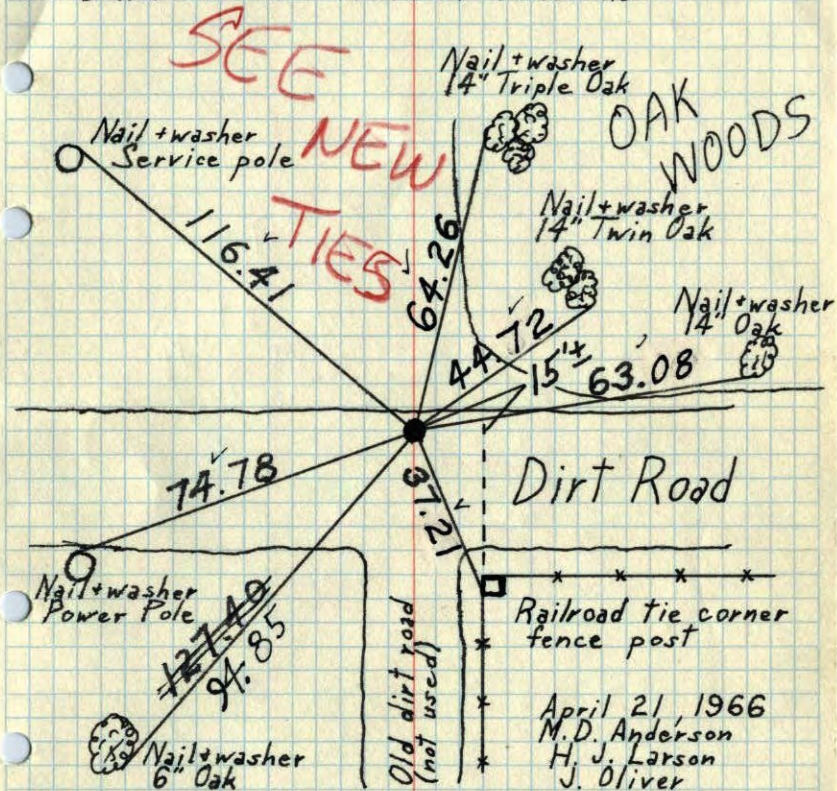 SEE
NEW
TIES
Nail + washer
14" Triple Oak
OAK
WOODS
Nail + washer
Service pole
Nail + washer
14" Twin Oak
Nail + washer
14" Oak
116.41
64.26
44.72
15'±
63.08
74.78
37.21
Dirt Road
Nail + washer
Power Pole
127.40
94.85
Nail + washer
6" Oak
Old dirt road
(not used)
Railroad tie corner
fence post
April 21, 1966
M.D. Anderson
H. J. Larson
J. Oliver